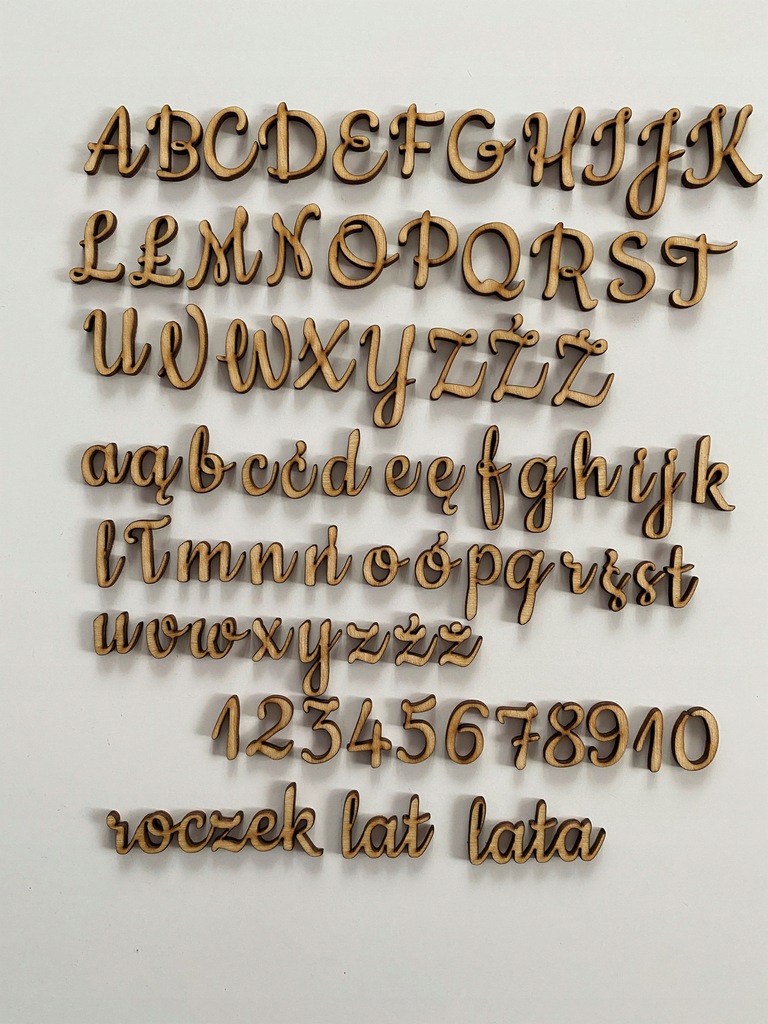 ABCDEFGHIJK
LŁMNOPQRST
UVWXYZŹŻ
aąbcćdeęfghijk
lłmnńoópqrśst
uvwxyzźż
12345678910
roczek lat lata